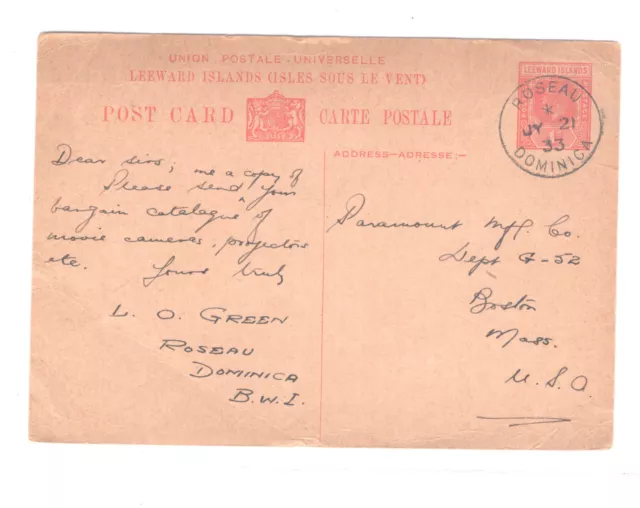 UNION POSTALE UNIVERSELLE
LEEWARD ISLANDS (ISLES SOUS LE VENT)
POST CARD CARTE POSTALE
ADDRESS-ADRESSE:-
LEEWARD ISLANDS
ROSEAU
JY 21
33
DOMINICA
Dear sirs;
me a copy of
Please send ^ your
bargain catalogue of
movie cameras, projectors
etc. Yours truly
L. O. GREEN
ROSEAU
DOMINICA
B.W.I.
Paramount Mfl. Co.
Dept G-52
Boston
Mass.
U.S.A.